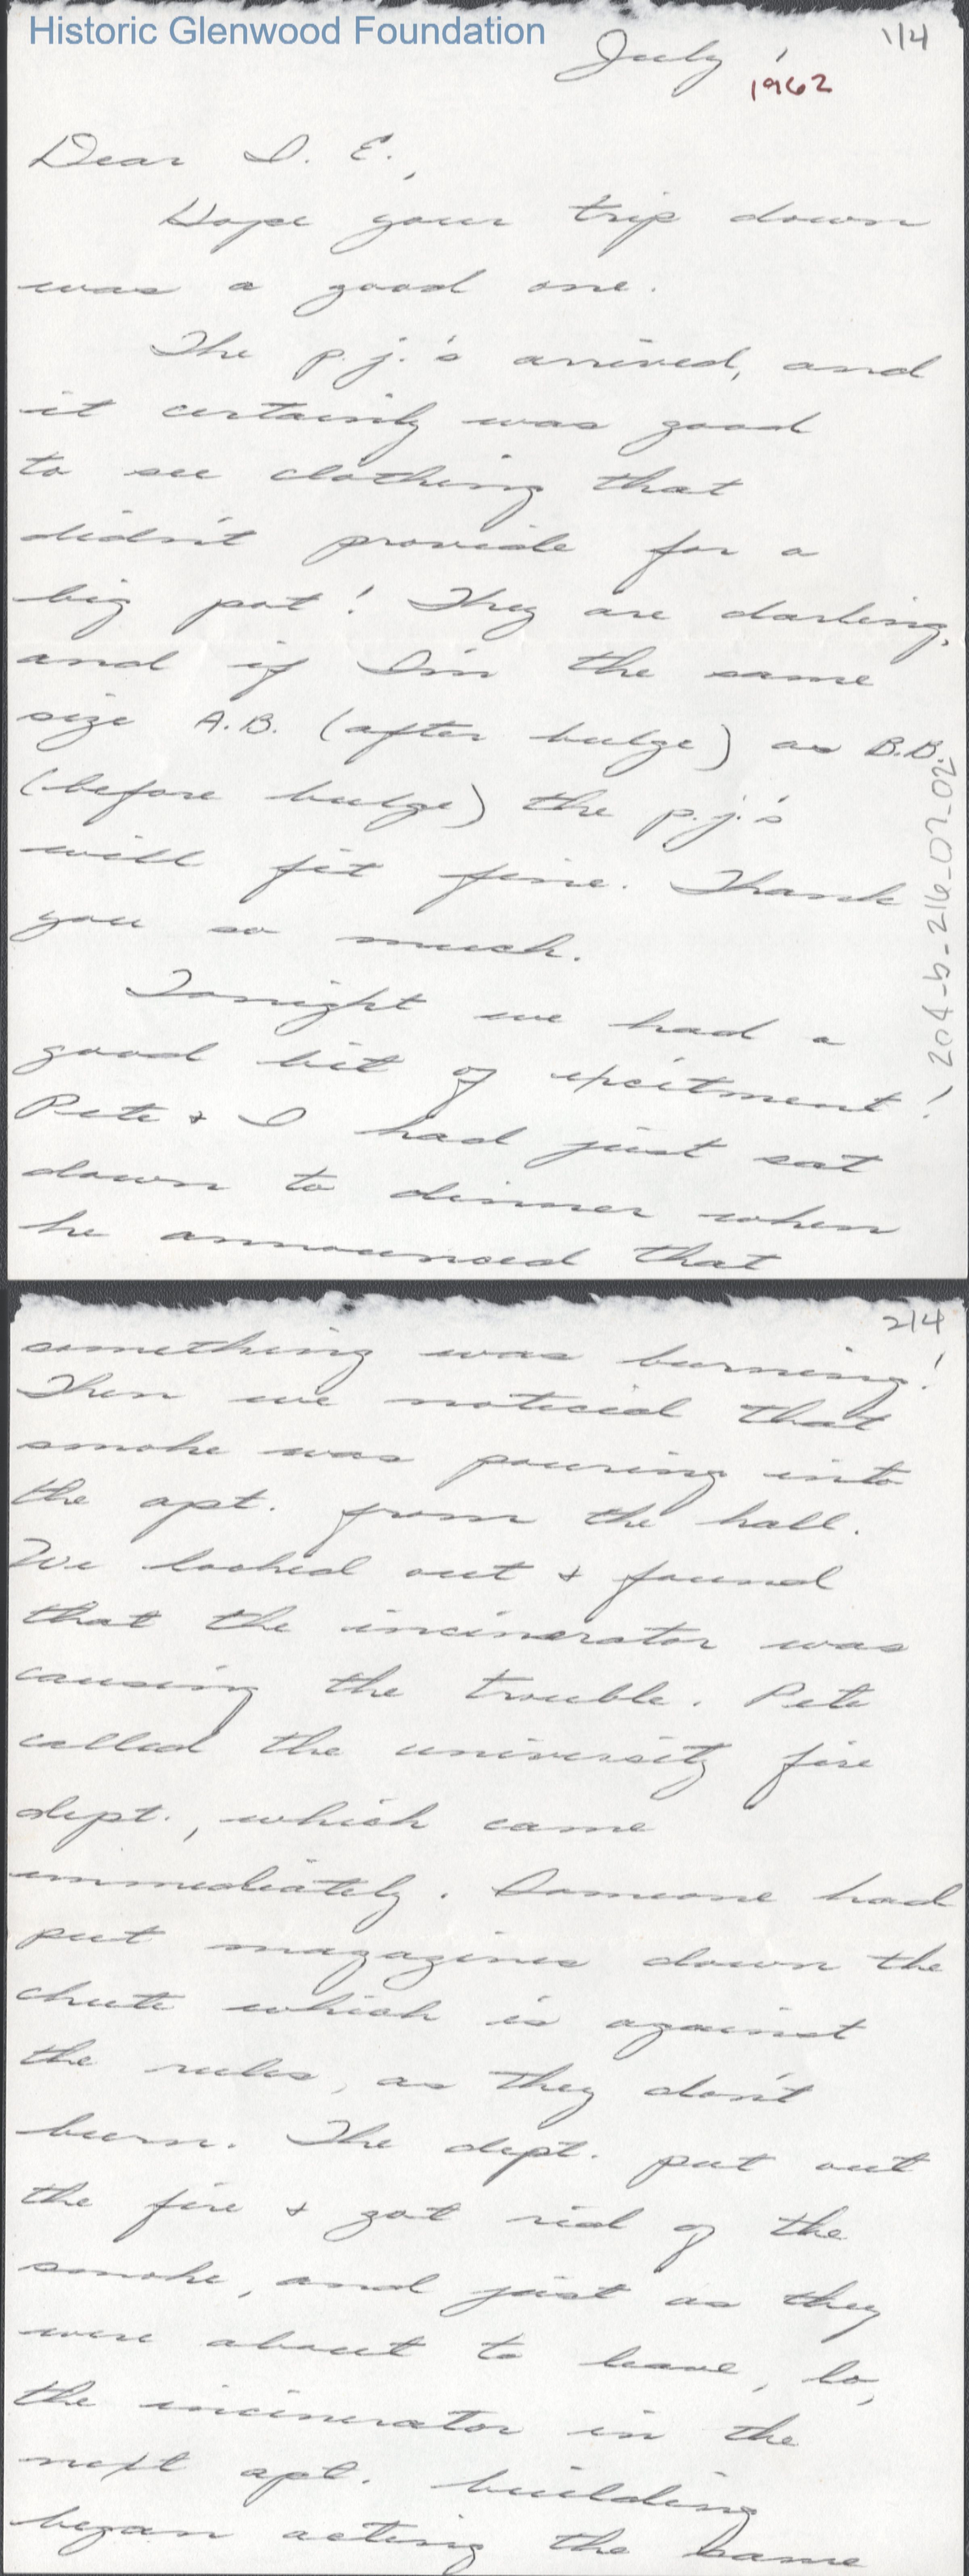 Historic Glenwood Foundation
1/4
July
1962
Dear D. E.,
Hope your trip down
was a good one.
The p.j.'s arrived, and
it certainly was good
to see clothing that
didn't provide for a
big pot! They are darling,
and if I'm the same
size A.B. (after bulge) as B.B.
(before bulge) the p.j.'s
will fit fine. Thank
you so much.
Tonight we had a
good bit of excitment!
Pete & I had just sat
down to dinner when
he announced that
204-b-216-07-02
2/4
something was burning!
Then we noticed that
smoke was pouring into
the apt. from the hall.
We looked out & found
that the incinerator was
causing the trouble. Pete
called the university fire
dept., which came
immediately. Someone had
put magazines down the
chute which is against
the rules, as they don't
burn. The dept. put out
the fire & got rid of the
smoke, and just as they
were about to leave, lo,
the incinerator in the
next apt. building
began acting the same